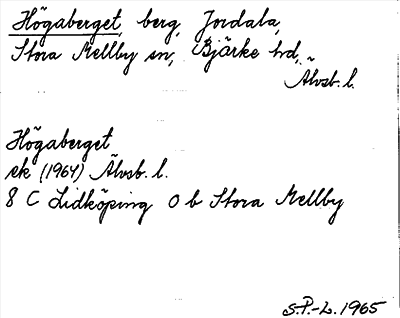 Högaberget, berg, Jordala,
Stora Mellby sn, Bjärke hd,
Älvsb. l.
Högaberget
ek (1964) Älvsb. l.
8 C Lidköping 0 b Stora Mellby
S.P.-L. 1965